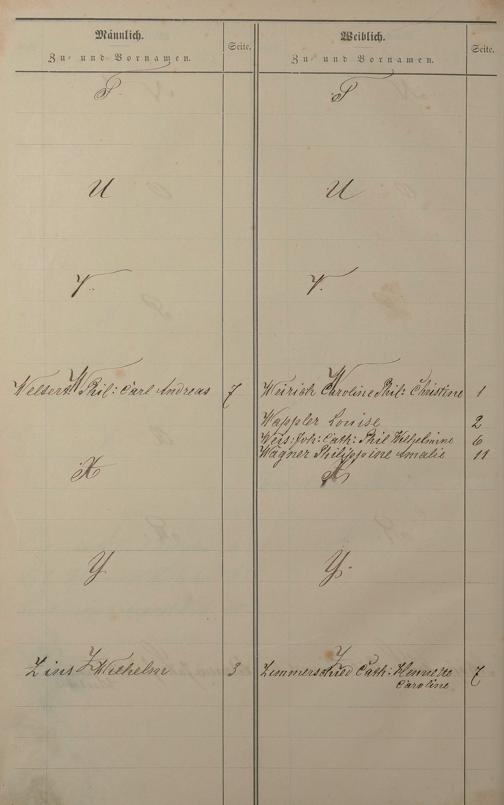 Männlich.
Seite.
Zu- und Vornamen.
T.
U
V.
W
Welsert Phil: Carl Andreas 7
X
Y
Z
Zins Wilhelm 3
Weiblich.
Seite.
Zu- und Vornamen.
T
U
V.
W
Weirich Caroline Phil: Christine 1
Wappler Louise 2
Weis: Joh: Cath: Phil Wilhelmine 6
Wagner Philippine Amalie 11
X
Y.
Z
Zimmerschied Cath: Henriette 7
Caroline